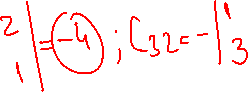 2
1 | = -4 ; C32 = - | 1
3